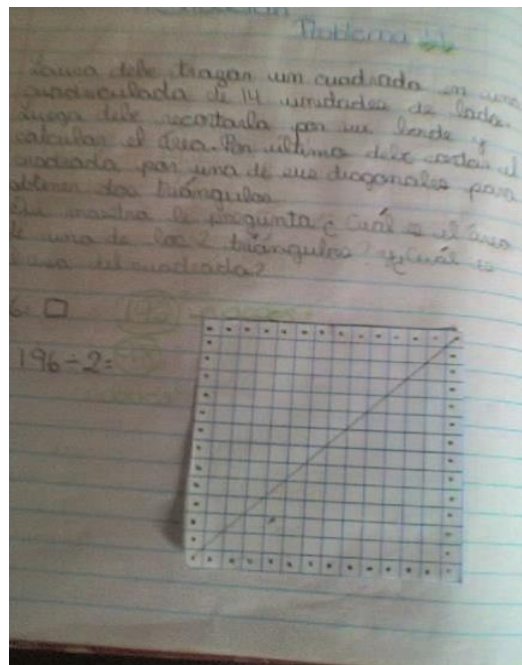 Problema
Laura debe trazar un cuadrado en una
cuadriculada de 14 unidades de lado.
Luego debe recortarla por su borde y
calcular el área. Por ultimo debe cortar el
cuadrado por una de sus diagonales para
obtener dos triángulos
Su maestra le pregunta ¿Cuál es el área
de uno de los 2 triángulos? y ¿Cuál es
área del cuadrado?
196
196÷2=